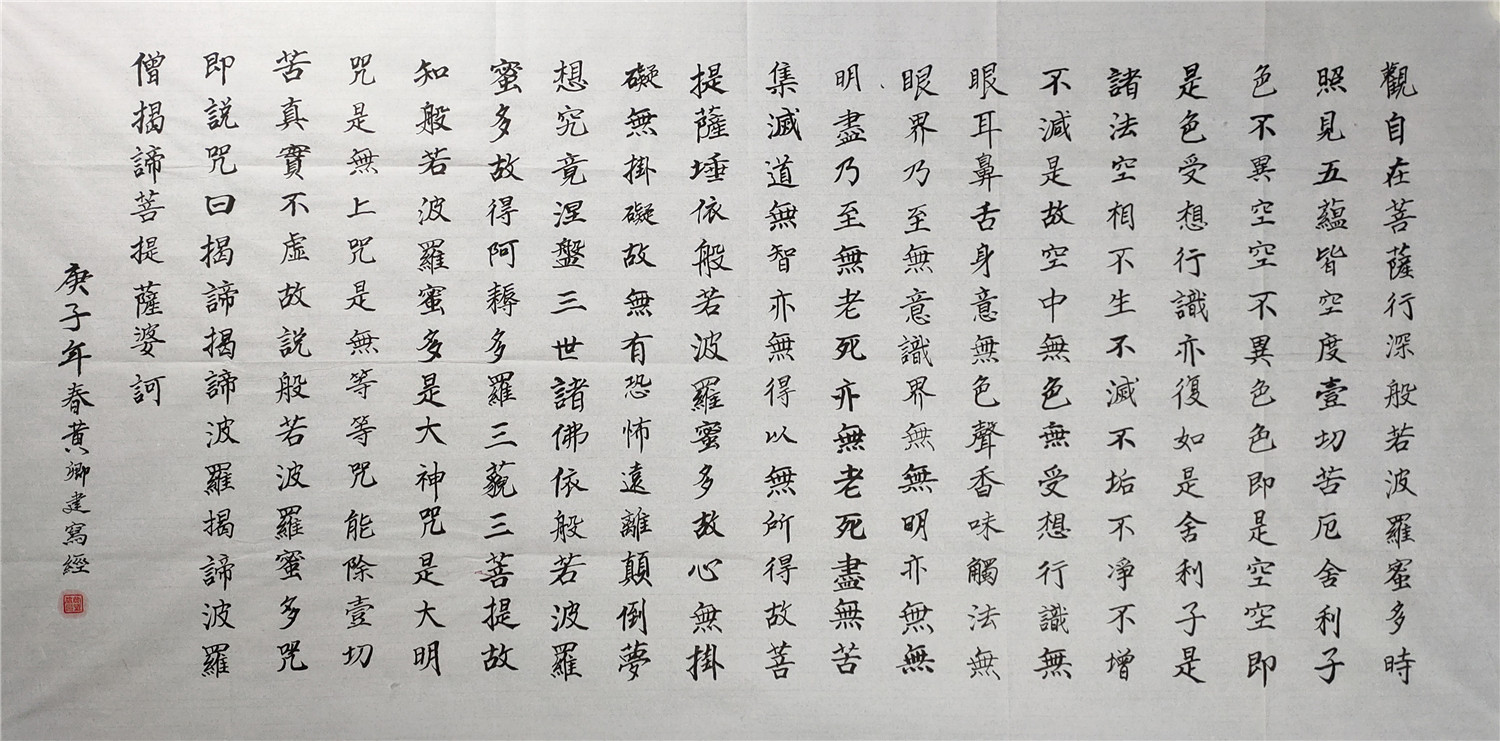 觀自在菩薩行深般若波羅蜜多時
照見五蘊皆空度壹切苦厄舍利子
色不異空空不異色色即是空空即
是色受想行識亦復如是舍利子是
諸法空相不生不滅不垢不淨不增
不減是故空中無色無受想行識無
眼耳鼻舌身意無色聲香味觸法無
眼界乃至無意識界無無明亦無無
明盡乃至無老死亦無老死盡無苦
集滅道無智亦無得以無所得故菩
提薩埵依般若波羅蜜多故心無掛
礙無掛礙故無有恐怖遠離顛倒夢
想究竟涅盤三世諸佛依般若波羅
蜜多故得阿耨多羅三藐三菩提故
知般若波羅蜜多是大神咒是大明
咒是無上咒是無等等咒能除壹切
苦真實不虛故説般若波羅蜜多咒
即説咒曰揭諦揭諦波羅揭諦波羅
僧揭諦菩提薩婆訶
庚子年春黄卿建寫經